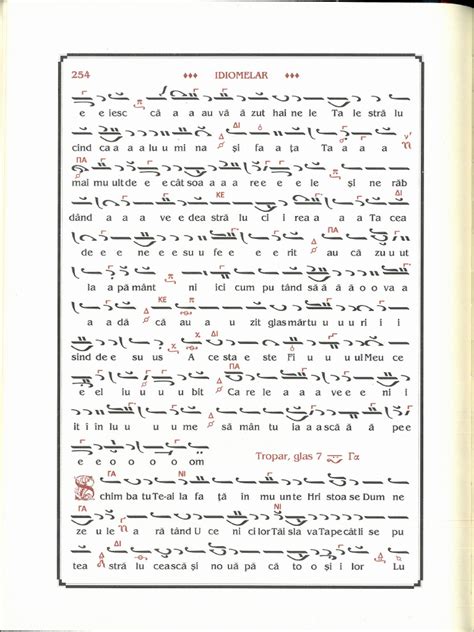 254 ♦♦♦ IDIOMELAR ♦♦♦
e e iesc că a a au vă zut hai ne le Ta le stră lu
cind ca a a a lu u mi na și fa a ța Ta a a a
mai mult de e e e cât soa a a a re e e e le și ne răb
dând a a a a ve e dea stră lu ci i rea a a a Ta cea
de e e e n e e e su u fe e e e rit au că zu u ut
la a pă mânt n i ici cum pu tând să ă ă ă o o va a
a a dă că au a u zit glas măr tu u u u r i i i
sind de e su us A ce sta e ste Fi u u u ul Meu ce
e e el iu u u u bit Ca re le a a a ve e e n i i
i i în tu u u u me să mân tu ia a as că ă ă pe e
e e o o o o om Tropar, glas 7 Γα
Schim ba tu Te-ai la fa ță în mu un te Hri stoa se Dum ne
ze u le a ră tând U ce ni ci lor Tăi sla va Ta pe cât li se pu
tea stră lu cească și no uă pă că to o și i lor Lu